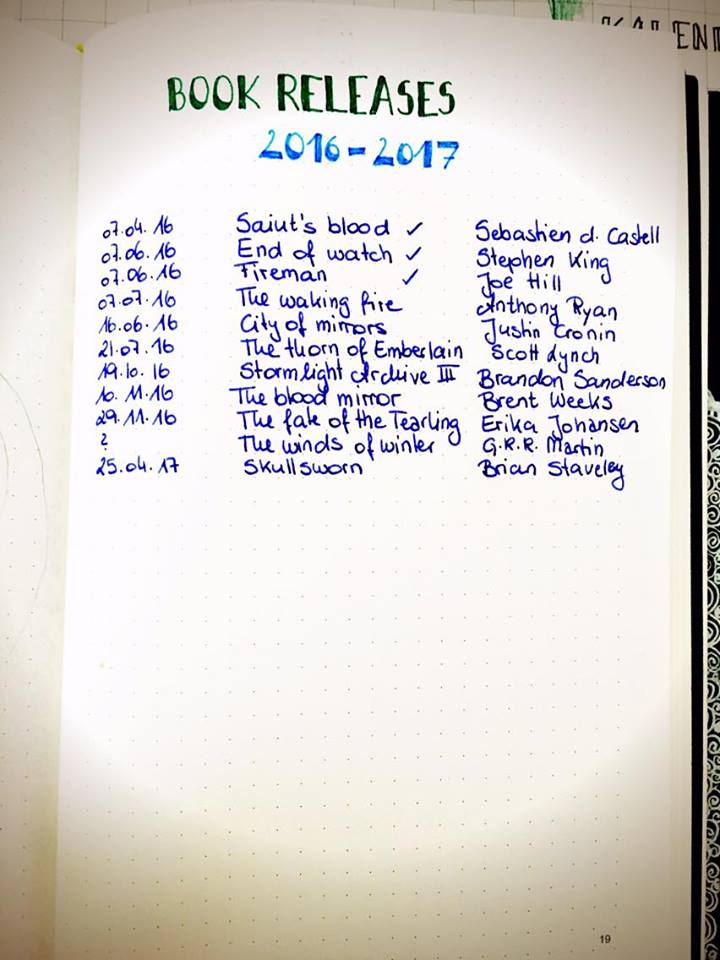 KALEND
BOOK RELEASES
2016-2017
07.04.16 Saint's blood ✓ Sebastien d. Castell
07.06.16 End of watch ✓ Stephen King
07.06.16 Fireman ✓ Joe Hill
07.07.16 The waking fire Anthony Ryan
16.06.16 City of mirrors Justin Cronin
21.07.16 The thorn of Emberlain Scott Lynch
19.10.16 Stormlight Archive III Brandon Sanderson
10.11.16 The blood mirror Brent Weeks
29.11.16 The fate of the Tearling Erika Johansen
? The winds of winter G.R.R. Martin
25.04.17 Skullsworn Brian Staveley
19